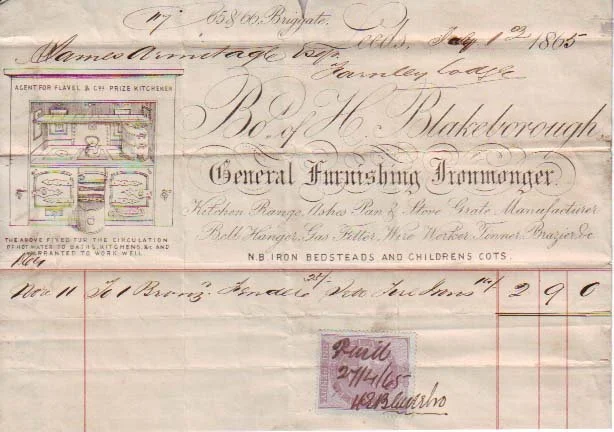 65 & 66, Briggate,
Leeds, July 1st 1865
James Armitage Esqr
Farnley Lodge
AGENT FOR FLAVEL & COS PRIZE KITCHENER
Bot. of H. Blakeborough,
General Furnishing Ironmonger.
Kitchen Range, Ashes Pan & Stove Grate Manufacturer
Bell Hanger, Gas Fitter, Wire Worker, Tinner, Brazier &c
THE ABOVE FIXED FOR THE CIRCULATION
OF HOT WATER TO BATHS, KITCHENS, &c. AND
WARRANTED TO WORK WELL.
N.B. IRON BEDSTEADS AND CHILDRENS COTS.
1864
Nov 11 To 1 Bronz. Fender 35/- Set Fire Irons 14/- 2 9 0
Paid
27/4/65